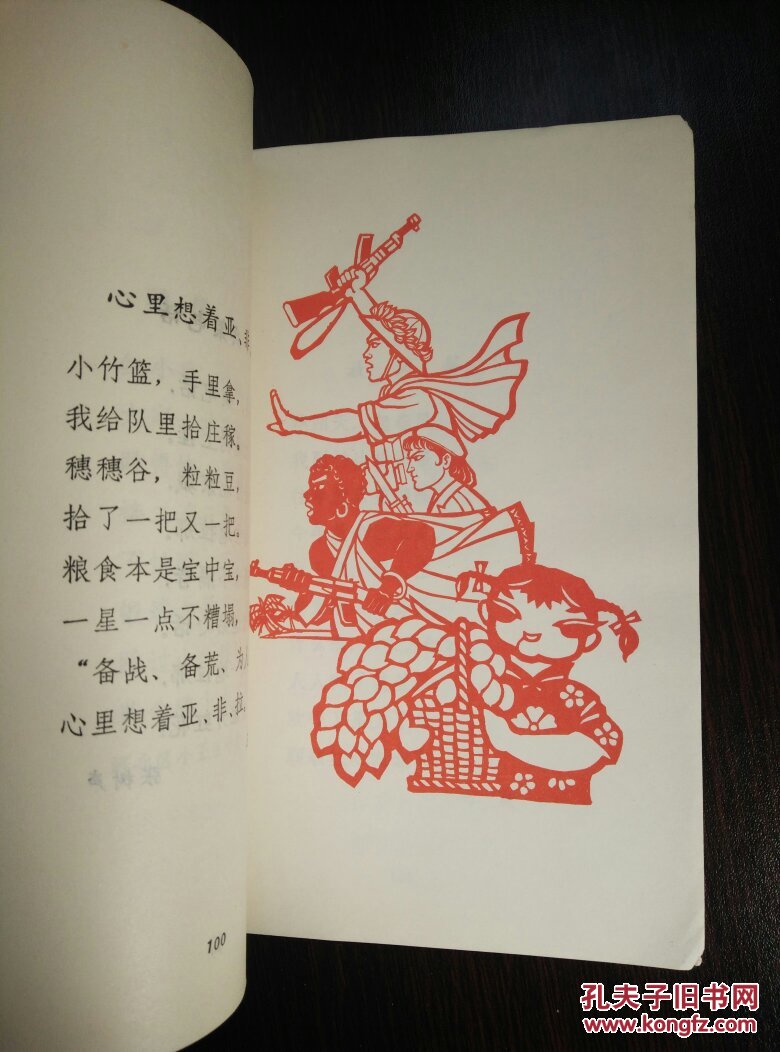 心里想着亚、非
小竹篮，手里拿，
我给队里拾庄稼。
穗穗谷，粒粒豆，
拾了一把又一把。
粮食本是宝中宝，
一星一点不糟塌，
“备战、备荒、为
心里想着亚、非、拉。
100
孔夫子旧书网
www.kongfz.com